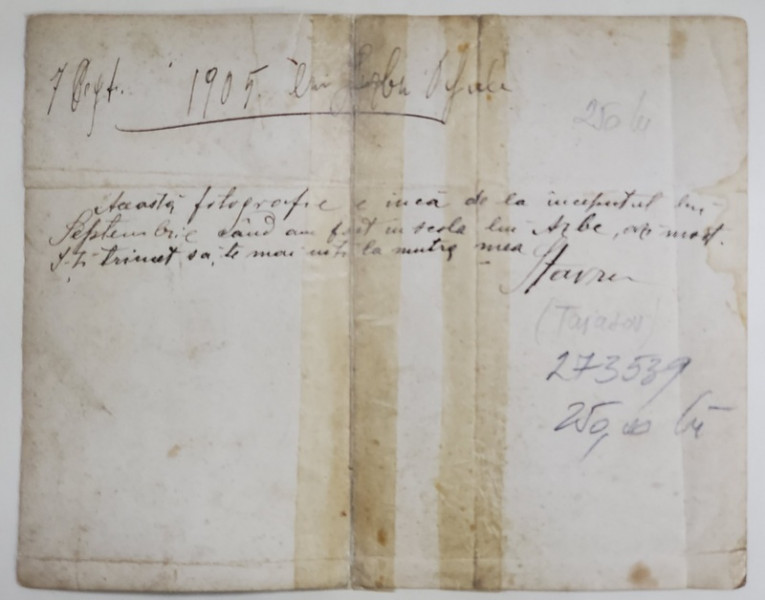 7 Sept. 1905
250 lei
Această fotografie e încă de la începutul lui
Septembrie când am fost în scola lui Azbe, azi mort.
Ți-o trimet să te mai uiți la mutra mea
Stavru
(Tarasov)
273539
250,00 lei